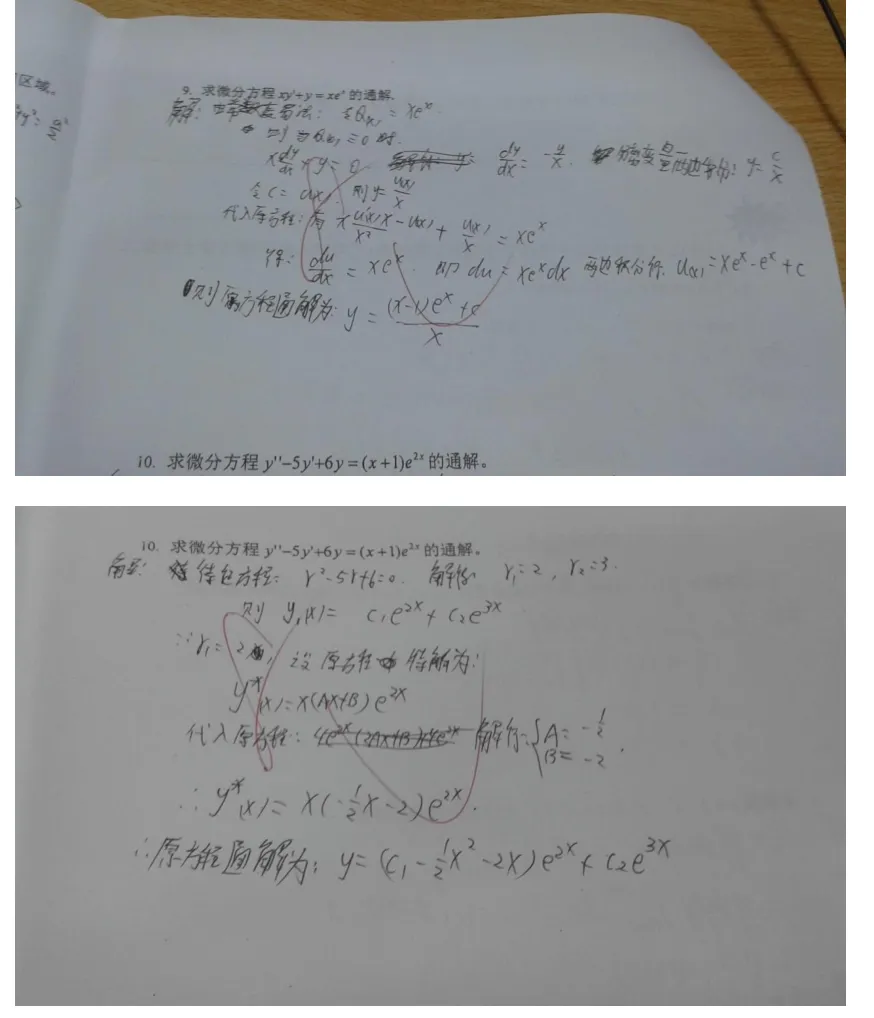 区域。
9. 求微分方程 xy'+y=xeˣ 的通解.
解: 易法: Q(x) = xeˣ
则 当 Q(x) = 0 时.
x dy/dx + y = 0 dy/dx = -y/x. 分离变 y = c/x
令 C = u(x) 则 y = u(x)/x
代入原方程: 有 x (u'(x)x - u(x))/x² + u(x)/x = xeˣ
得: du/dx = xeˣ. 即 du = xeˣdx 两边积分得. u(x) = xeˣ - eˣ + c
则 原方程通解为: y = ((x-1)eˣ + c)/x
10. 求微分方程 y''-5y'+6y=(x+1)e²ˣ 的通解。
10. 求微分方程 y''-5y'+6y=(x+1)e²ˣ 的通解。
解: 特征方程: r²-5r+6=0. 解得 r₁=2, r₂=3.
则 y(x) = c₁e²ˣ + c₂e³ˣ
∵ r₁ = 2, 设原方程 特解为:
y*(x) = x(Ax+B)e²ˣ
代入原方程: 解得 {A = -1/2 B = -2.
∴ y*(x) = x(-1/2x-2)e²ˣ.
∴ 原方程通解为: y = (c₁ - 1/2x² - 2x)e²ˣ + c₂e³ˣ